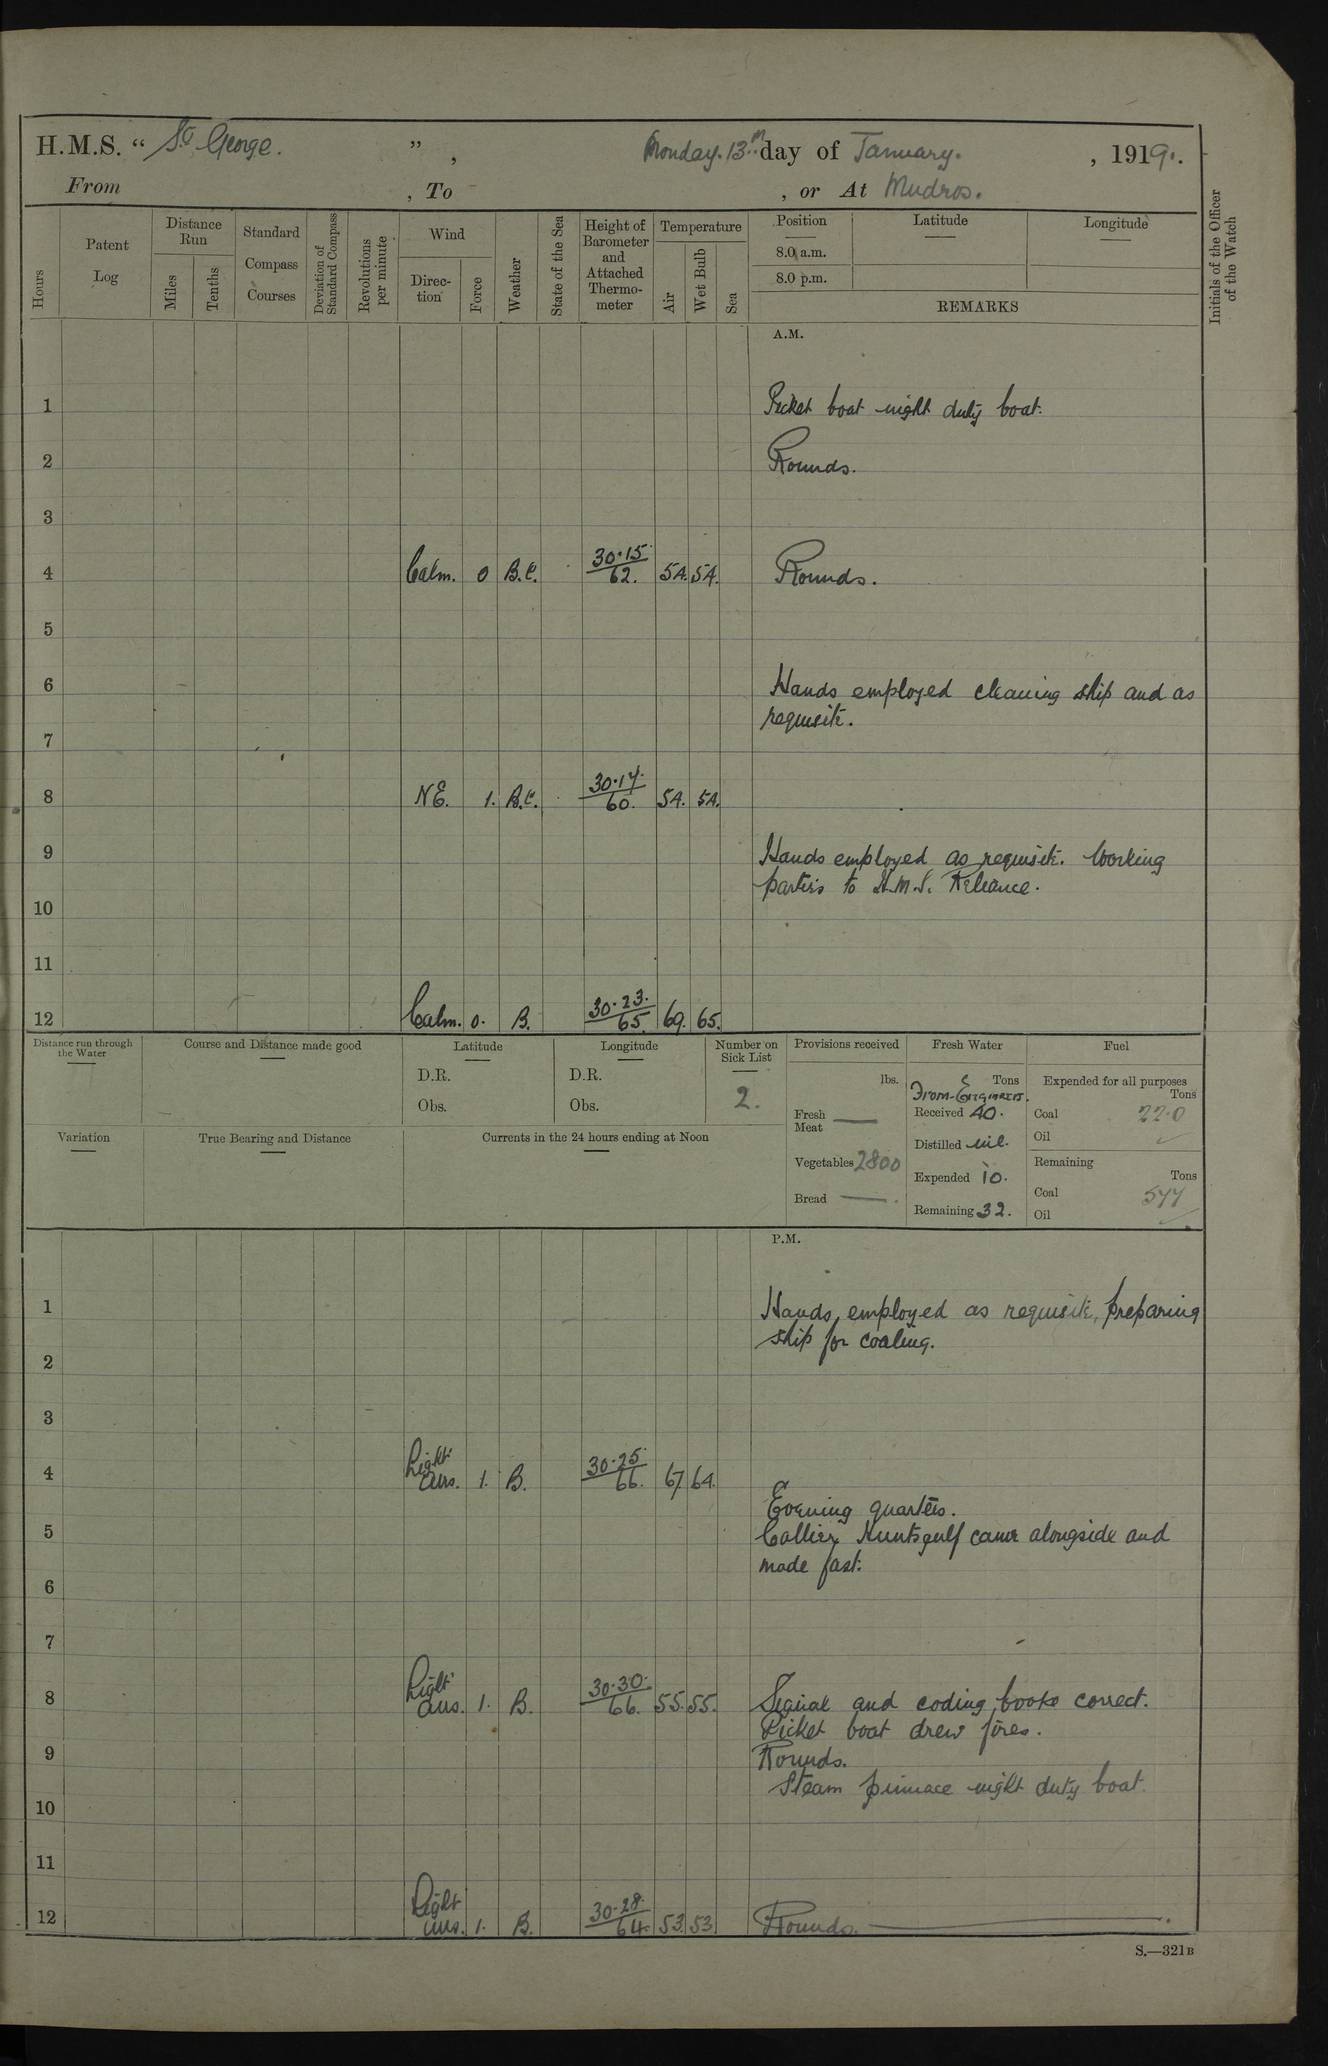 H.M.S. “ St George. ” , Monday. 13th day of January. , 1919.
From , To , or At Mudros.
Hours
Patent Log
Distance Run
Miles
Tenths
Standard Compass Courses
Deviation of Standard Compass
Revolutions per minute
Wind
Direction
Force
Weather
State of the Sea
Height of Barometer and Attached Thermometer
Temperature
Air
Wet Bulb
Sea
Position Latitude Longitude
8.0 a.m.
8.0 p.m.
REMARKS
Initials of the Officer of the Watch
A.M.
1 Picket boat night duty boat.
2 Rounds.
3
4 Calm. 0 B.C. 30.15/62. 54. 54. Rounds.
5
6 Hands employed cleaning ship and as
requisite.
7
8 NE. 1. B.C. 30.17./60. 54. 54.
9 Hands employed as requisite. Working
parties to H.M.S. Reliance.
10
11
12 Calm. 0. B. 30.23./65. 69. 65.
Distance run through the Water
Course and Distance made good
Latitude
D.R.
Obs.
Longitude
D.R.
Obs.
Number on Sick List
2.
Provisions received
lbs.
Fresh Meat —
Vegetables 2800
Bread — .
Fresh Water
Tons
From Engineers.
Received 40.
Distilled nil.
Expended 10.
Remaining 32.
Fuel
Expended for all purposes
Tons
Coal 22.0
Oil ✓
Remaining
Tons
Coal 577
Oil ✓
Variation
True Bearing and Distance
Currents in the 24 hours ending at Noon
P.M.
1 Hands employed as requisite, preparing
ship for coaling.
2
3
4 Light airs. 1. B. 30.25./66. 67. 64.
Evening quarters.
5 Collier Huntsgulf came alongside and
made fast.
6
7
8 Light airs. 1. B. 30.30./66. 55. 55. Signal and coding books correct.
Picket boat drew fires.
9 Rounds.
Steam pinnace night duty boat.
10
11
12 Light airs. 1. B. 30.28./64. 53. 53. Rounds.
S.—321B